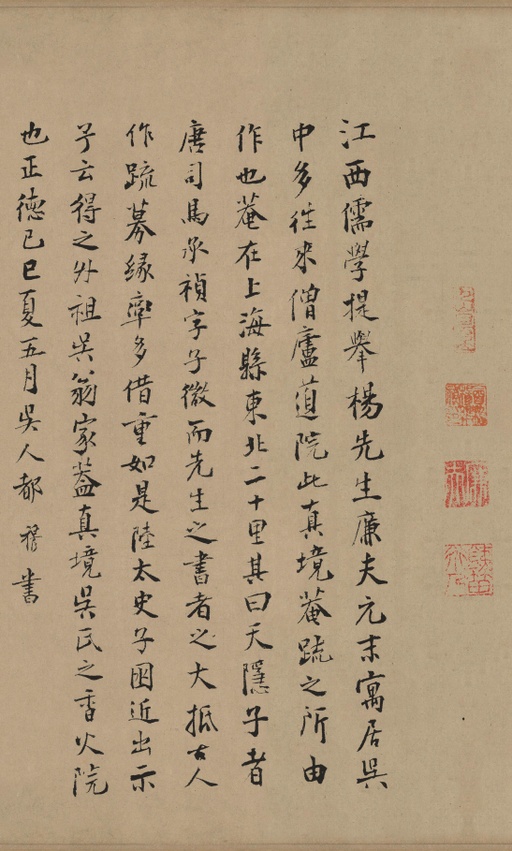 江西儒學提舉楊先生廉夫元末寓居吳
中多往來僧廬道院此真境菴疏之所由
作也菴在上海縣東北二十里其曰天隱子者
唐司馬承禎字子微而先生之書者也大抵古人
作疏募緣率多借重如是陸太史子囦近出示
予云得之外祖吳翁家蓋真境吳氏之香火院
也正德己巳夏五月吳人都穆書